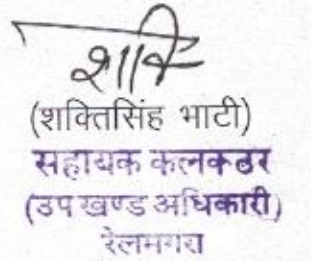 शक्ति
(शक्तिसिंह भाटी)
सहायक कलक्टर
(उप खण्ड अधिकारी)
रेलमगरा